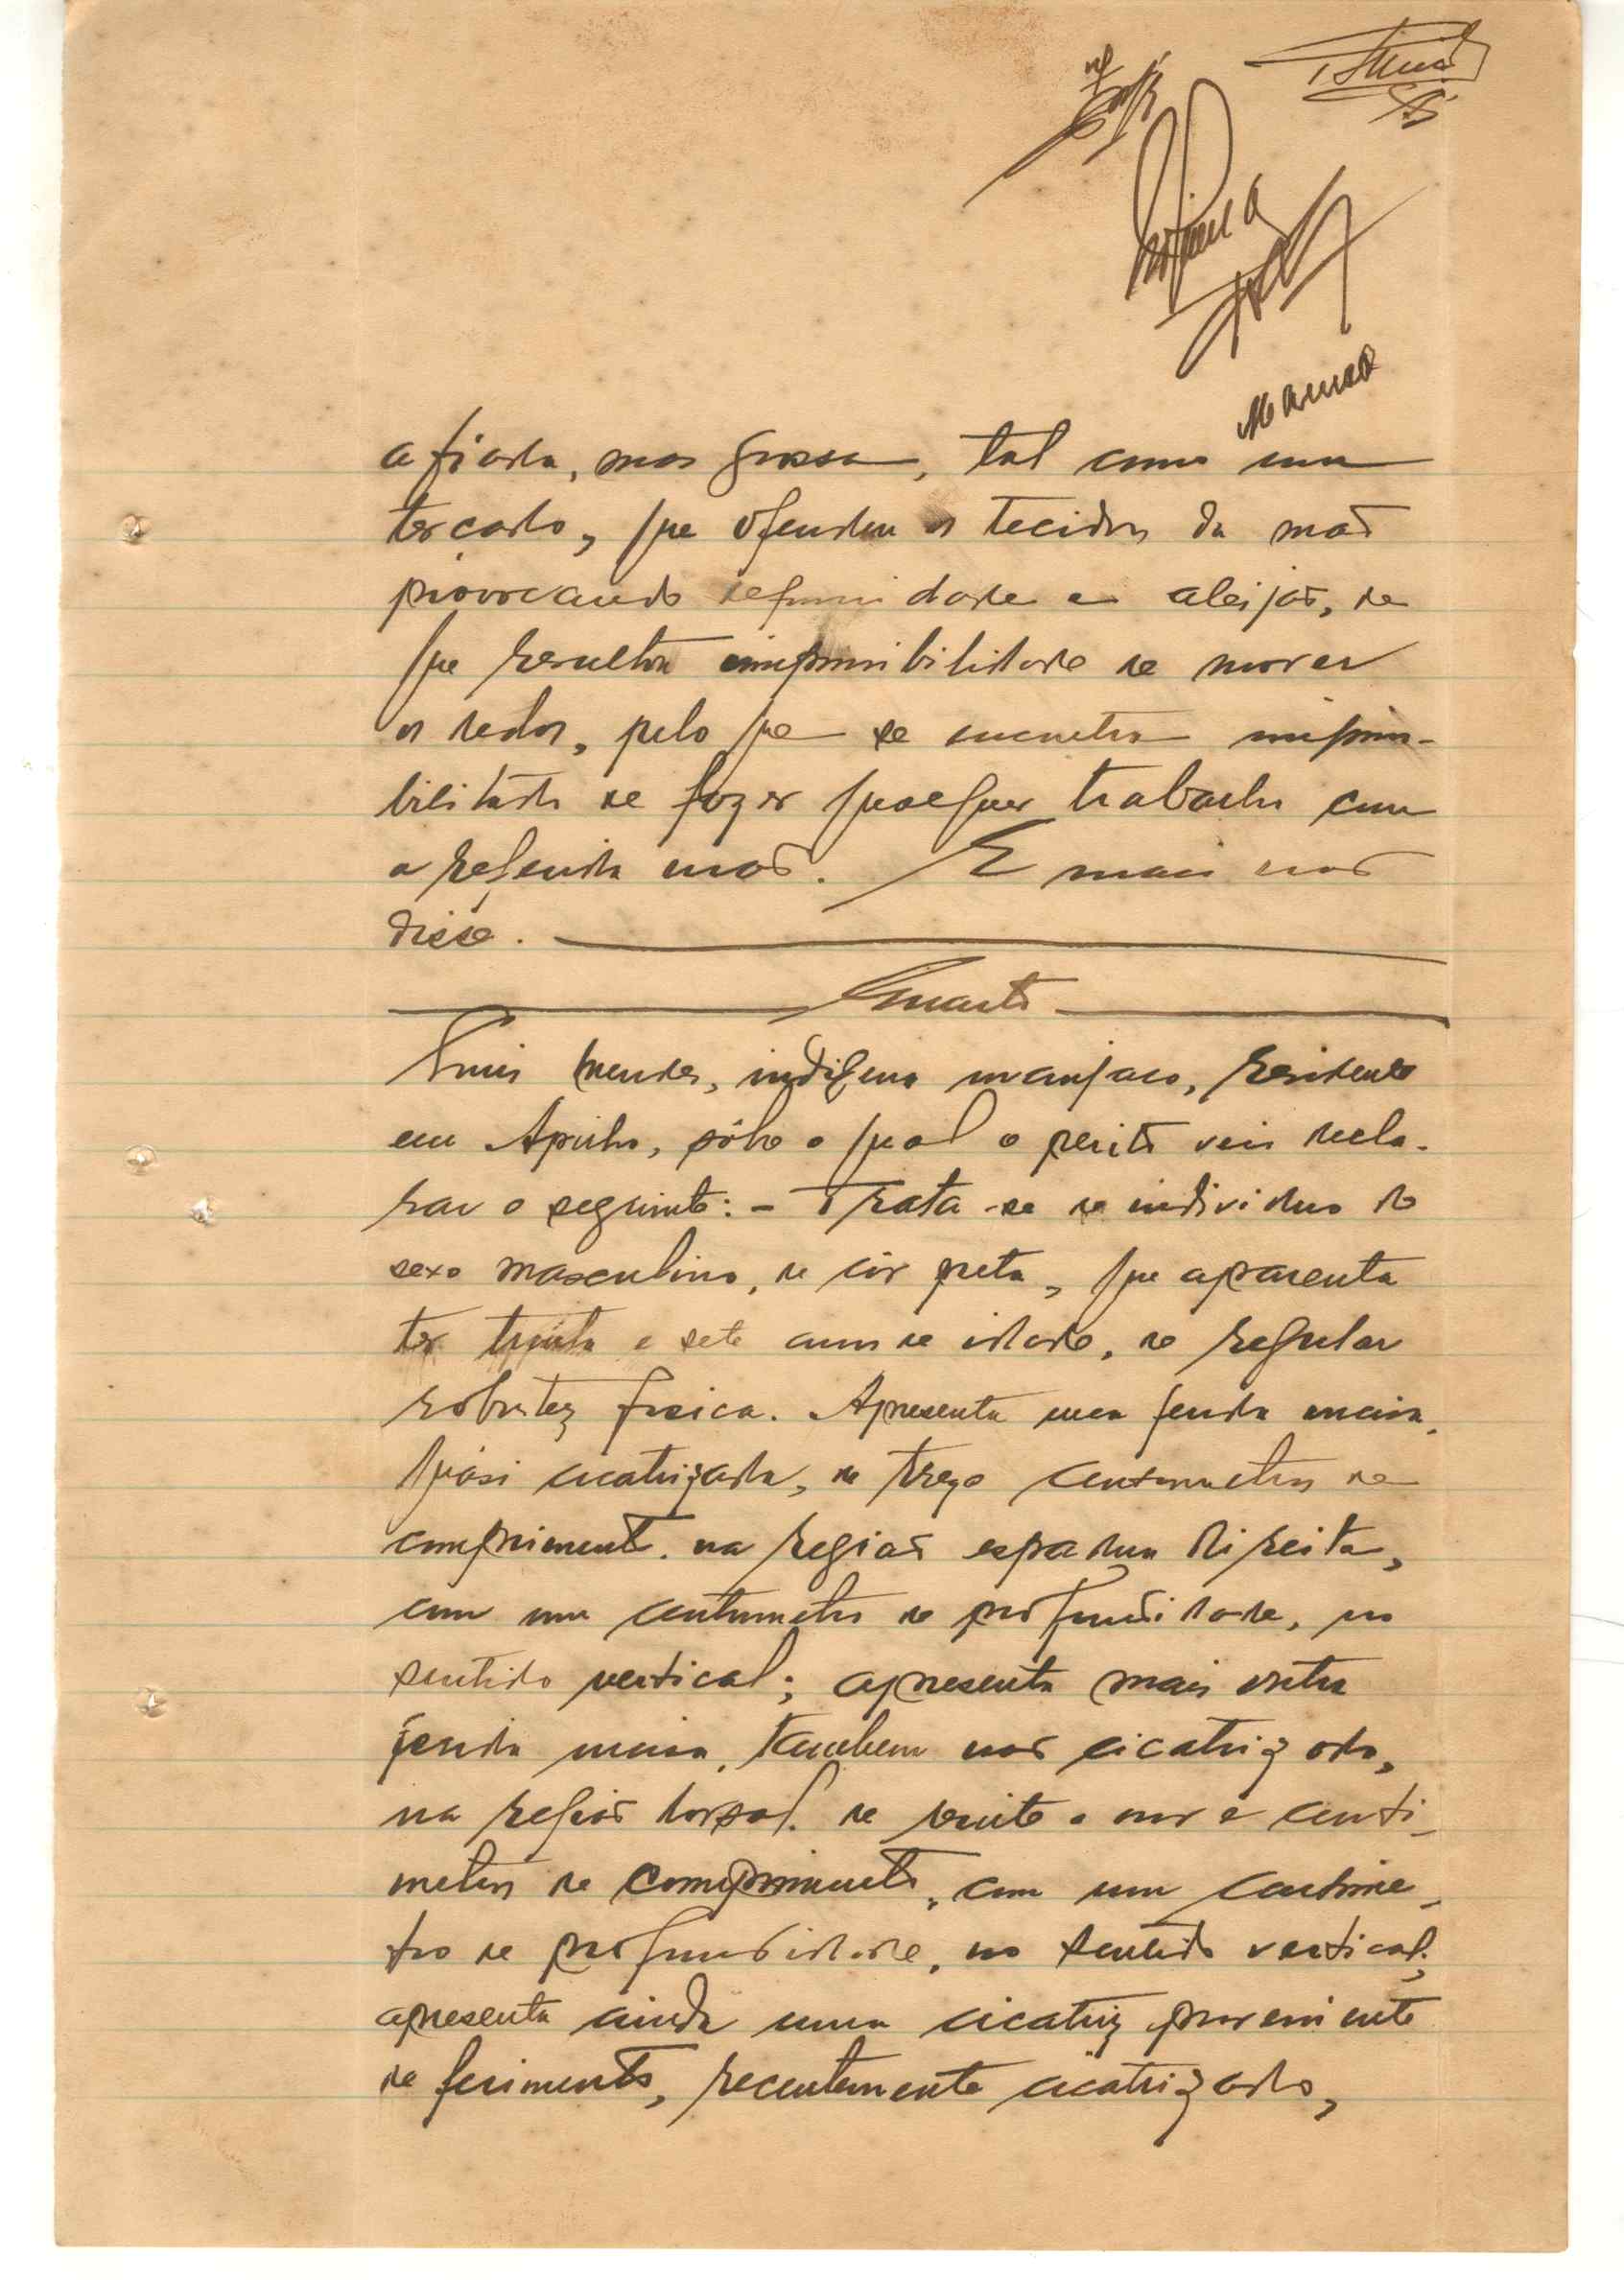 Manso
afiada, mas grossa, tal como um
terçado, que ofendeu os tecidos da mão
provocando deformidade e aleijão, de
que resulta impossibilidade de mover
os dedos, pelo que se encontra impossi-
bilitado de fazer qualquer trabalho com
a referida mão. E mais não
disse.
Quarto
Luis Mendes, indigena manjaco, residente
em Apilho, sôbre o qual o perito veio decla-
rar o seguinte: - Trata-se de individuo do
sexo masculino, de côr preta, que aparenta
ter trinta e sete anos de idade, de regular
robustez fisica. Apresenta uma fenda incisa,
quási cicatrizada, de treze centimetros de
comprimento, na região espadua direita,
com um centimetro de profundidade, no
sentido vertical; apresenta mais outra
fenda incisa, tambem não cicatrizada,
na região dorsal, de vinte e nove centi-
metros de comprimento, com um centime-
tro de profundidade, no sentido vertical;
apresenta ainda uma cicatriz proveniente
de ferimento, recentemente cicatrizado,